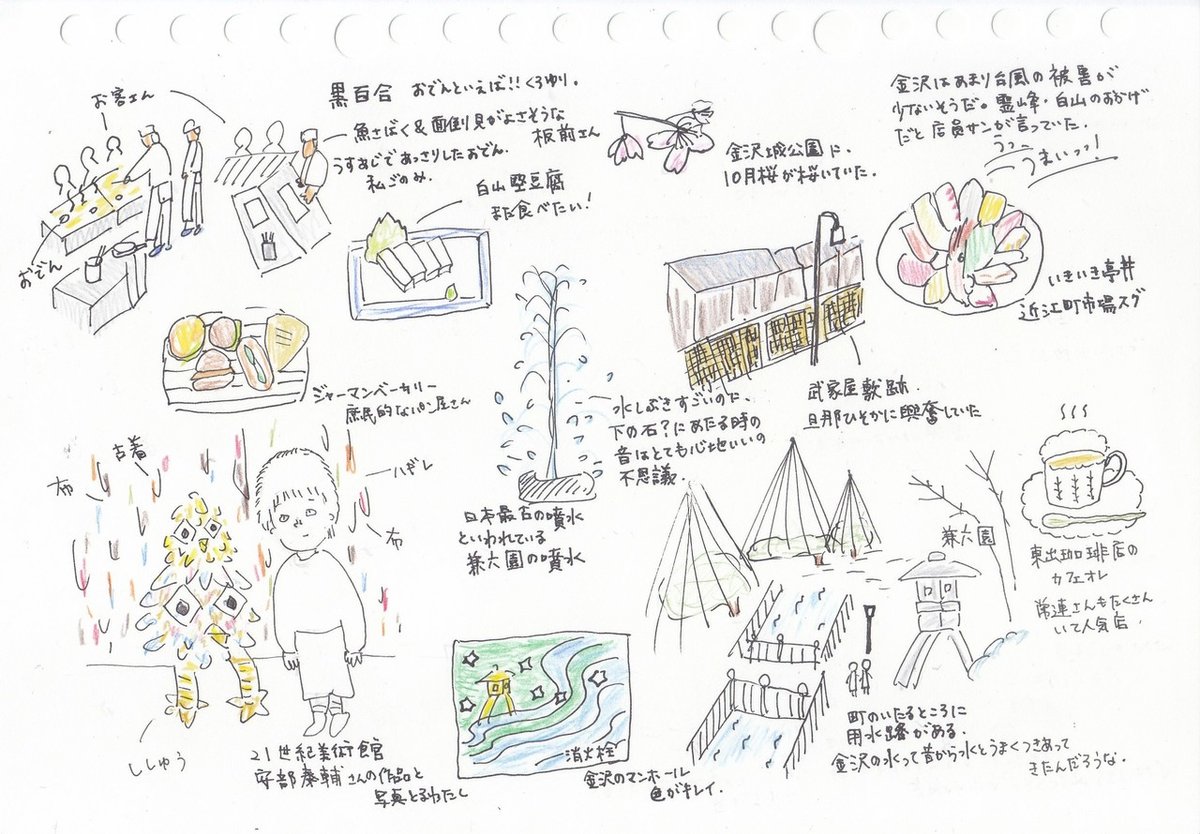 お客さん
黒百合 おでんといえば!!くろゆり。
魚さばく&面倒り見がよさそうな
板前さん
うすあじであっさりしたおでん。
私ごのみ.
おでん
白山堅豆腐
また食べたい!
金沢城公園に、
10月桜が咲いていた。
金沢はあまり台風の被害が
少ないそうだ。霊峰・白山のおかげ
だと店員サンが言っていた.
うまいっっ!
いきいき亭丼
近江町市場スグ
ジャーマンベーカリー
庶民的なパン屋さん
水しぶきすごいのに、
下の石?にあたる時の
音はとても心地いいの
不思議.
日本最古の噴水
といわれている
兼六園の噴水
武家屋敷跡.
旦那ひそかに興奮していた
古着
布
ハギレ
布
ししゅう
21世紀美術館
安部泰輔さんの作品と
写真とるわたし
消火栓
金沢のマンホール
色がキレイ.
兼六園
町のいたるところに
用水路がある.
金沢の水って昔から水とうまくつきあって
きたんだろうな.
東出珈琲店の
カフェオレ
常連さんもたくさん
いて人気店.